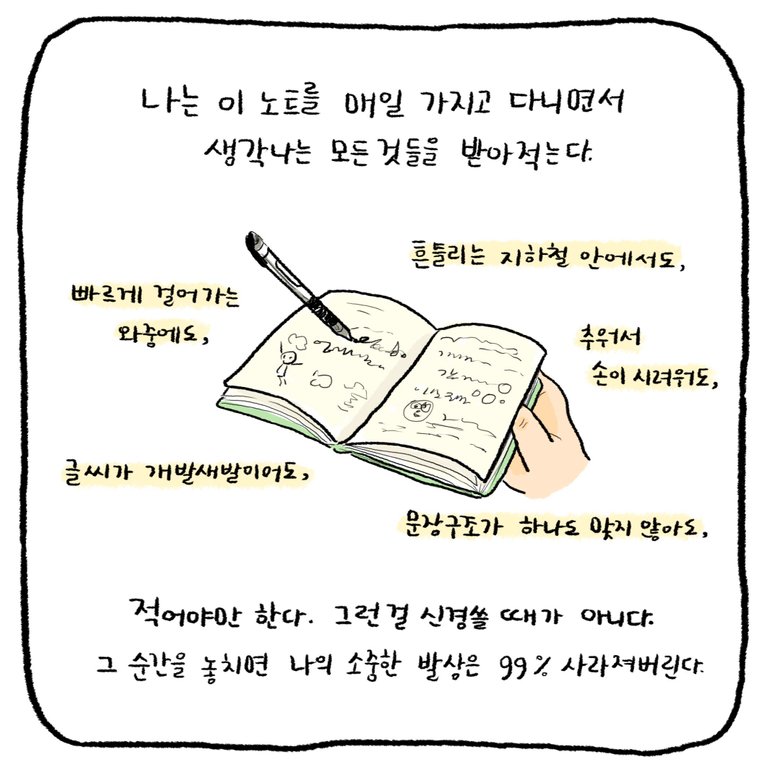 나는 이 노트를 매일 가지고 다니면서
생각나는 모든것들을 받아적는다.
흔들리는 지하철 안에서도,
빠르게 걸어가는
와중에도,
추워서
손이 시려워도,
글씨가 개발새발이어도,
문장구조가 하나도 맞지 않아도,
적어야만 한다. 그런걸 신경쓸 때가 아니다.
그 순간을 놓치면 나의 소중한 발상은 99% 사라져버린다.